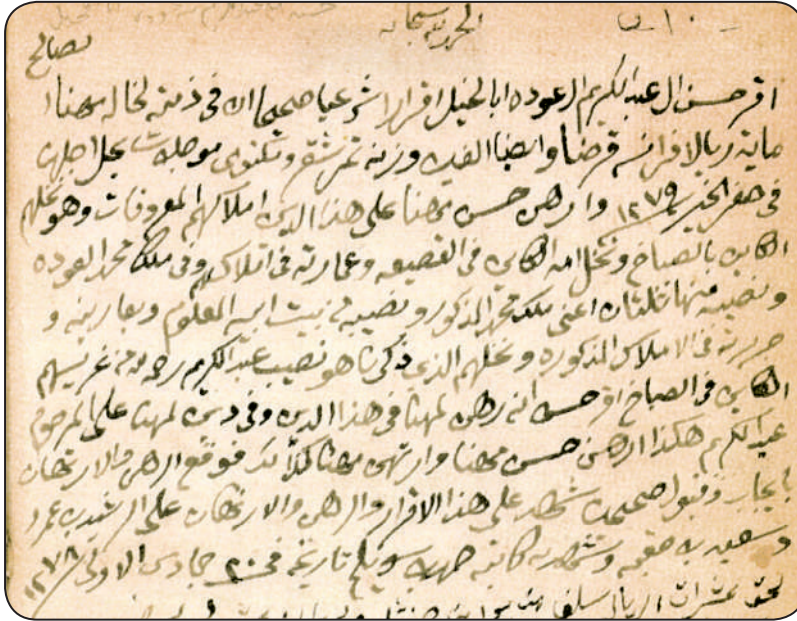 الحمد لله سبحانه
نصالح
اقر حسن ال عبد الكريم العوده ابا الخيل اقرارا شرعيا صحيحا ان في ذمته لخاله مهنا
ماية ريال فرانسه قرضا وايضا الفين وزنه تمر شقر ومكتومي موجلات يحل اجلهن
في صفر الخير ١٢٧٩ وارهن حسن مهنا على هذا الدين املاكهم المعروفات وهو نخلهم
الكاين بالصباخ ونخل امه الكاين في القصيعه وعمارته في املاك وفي ملك محمد العوده
ونصيبه منها ثلثان اعني ملك محمد المذكور ونصيبه في بيت ابيه المعلوم وبعارينه و
جريرته في الاملاك المذكوره ونخلهم الذي ذكرنا هو نصيب عبد الكريم من غريسهم
الكاين في الصباخ اقر حسن انه رهن لمهنا في هذا الدين وفي دين لمهنا على المرحوم
عبد الكريم هكذا ارهن حسن مهنا وارتهن مهنا كذلك فوقع الرهن والارتهان
بايجاب وقبول صحيحين شهد على هذا الاقرار والرهن والارتهان علي الرشيد عمر
وسعيد وشهد به كاتبه تاريخه في ٢٠ جمادى الاولى ١٢٧٨
لحق عشرات الريال سلف